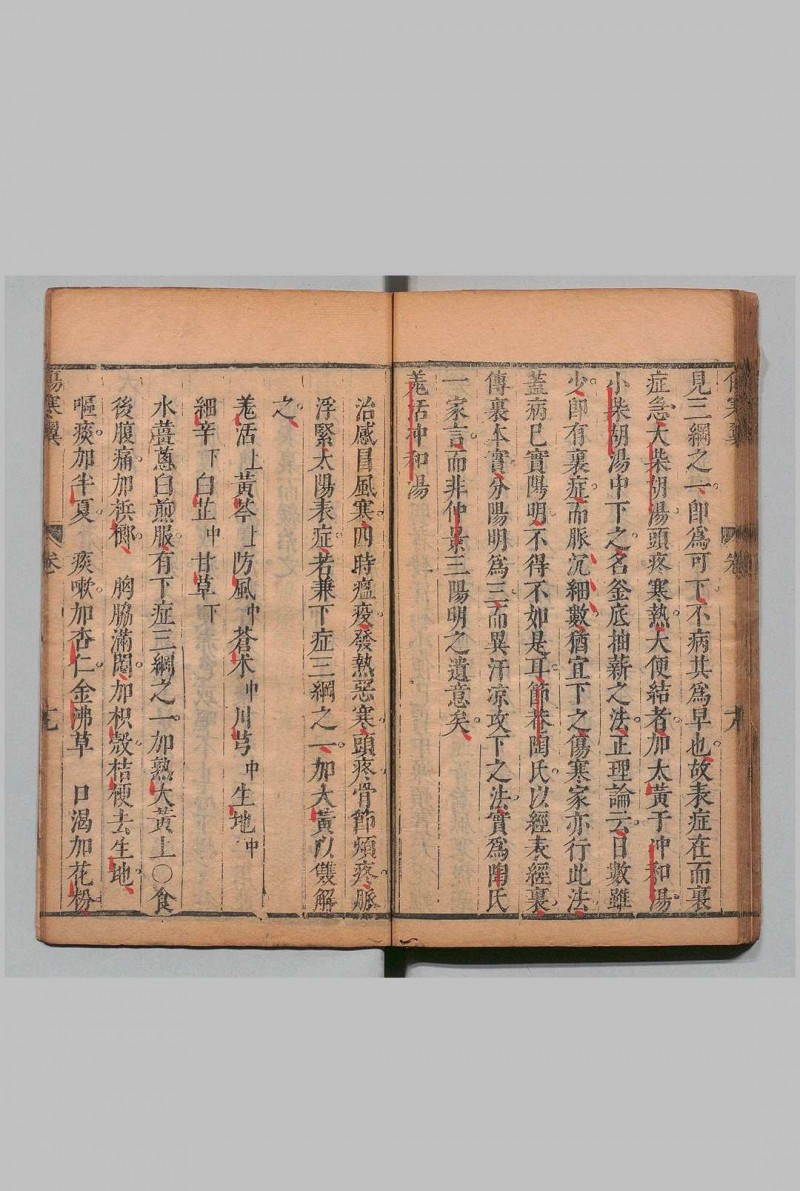 見三綱之一卽爲可下不病其爲早也故表症在而裏
症急大柴胡湯頭疼寒熱大便結者加大黃于冲和湯
小柴胡湯中下之名釜底抽薪之法正理論云日數雖
少卽有裏症而脈沉細數猶宜下之傷寒家亦行此法
蓋病已實陽明不得不如是耳節菴陶氏以經表經裏
傳裏本實分陽明爲三而異汗凉攻下之法實爲陶氏
一家言而非仲景三陽明之遺意矣
羗活冲和湯
治感冒風寒四時瘟疫發熱惡寒頭疼骨節煩疼脈
浮緊太陽表症若兼下症三綱之一加大黃以雙解
之
羗活上黃芩上防風中蒼术中川芎中生地中
細辛下白芷中甘草下
水薑蔥白煎服有下症三綱之一加熟大黃上○食
後腹痛加梹榔 胸脇滿悶加枳殼桔梗去生地
嘔痰加半夏 痰嗽加杏仁金沸草 口渴加花粉
傷寒翼 卷